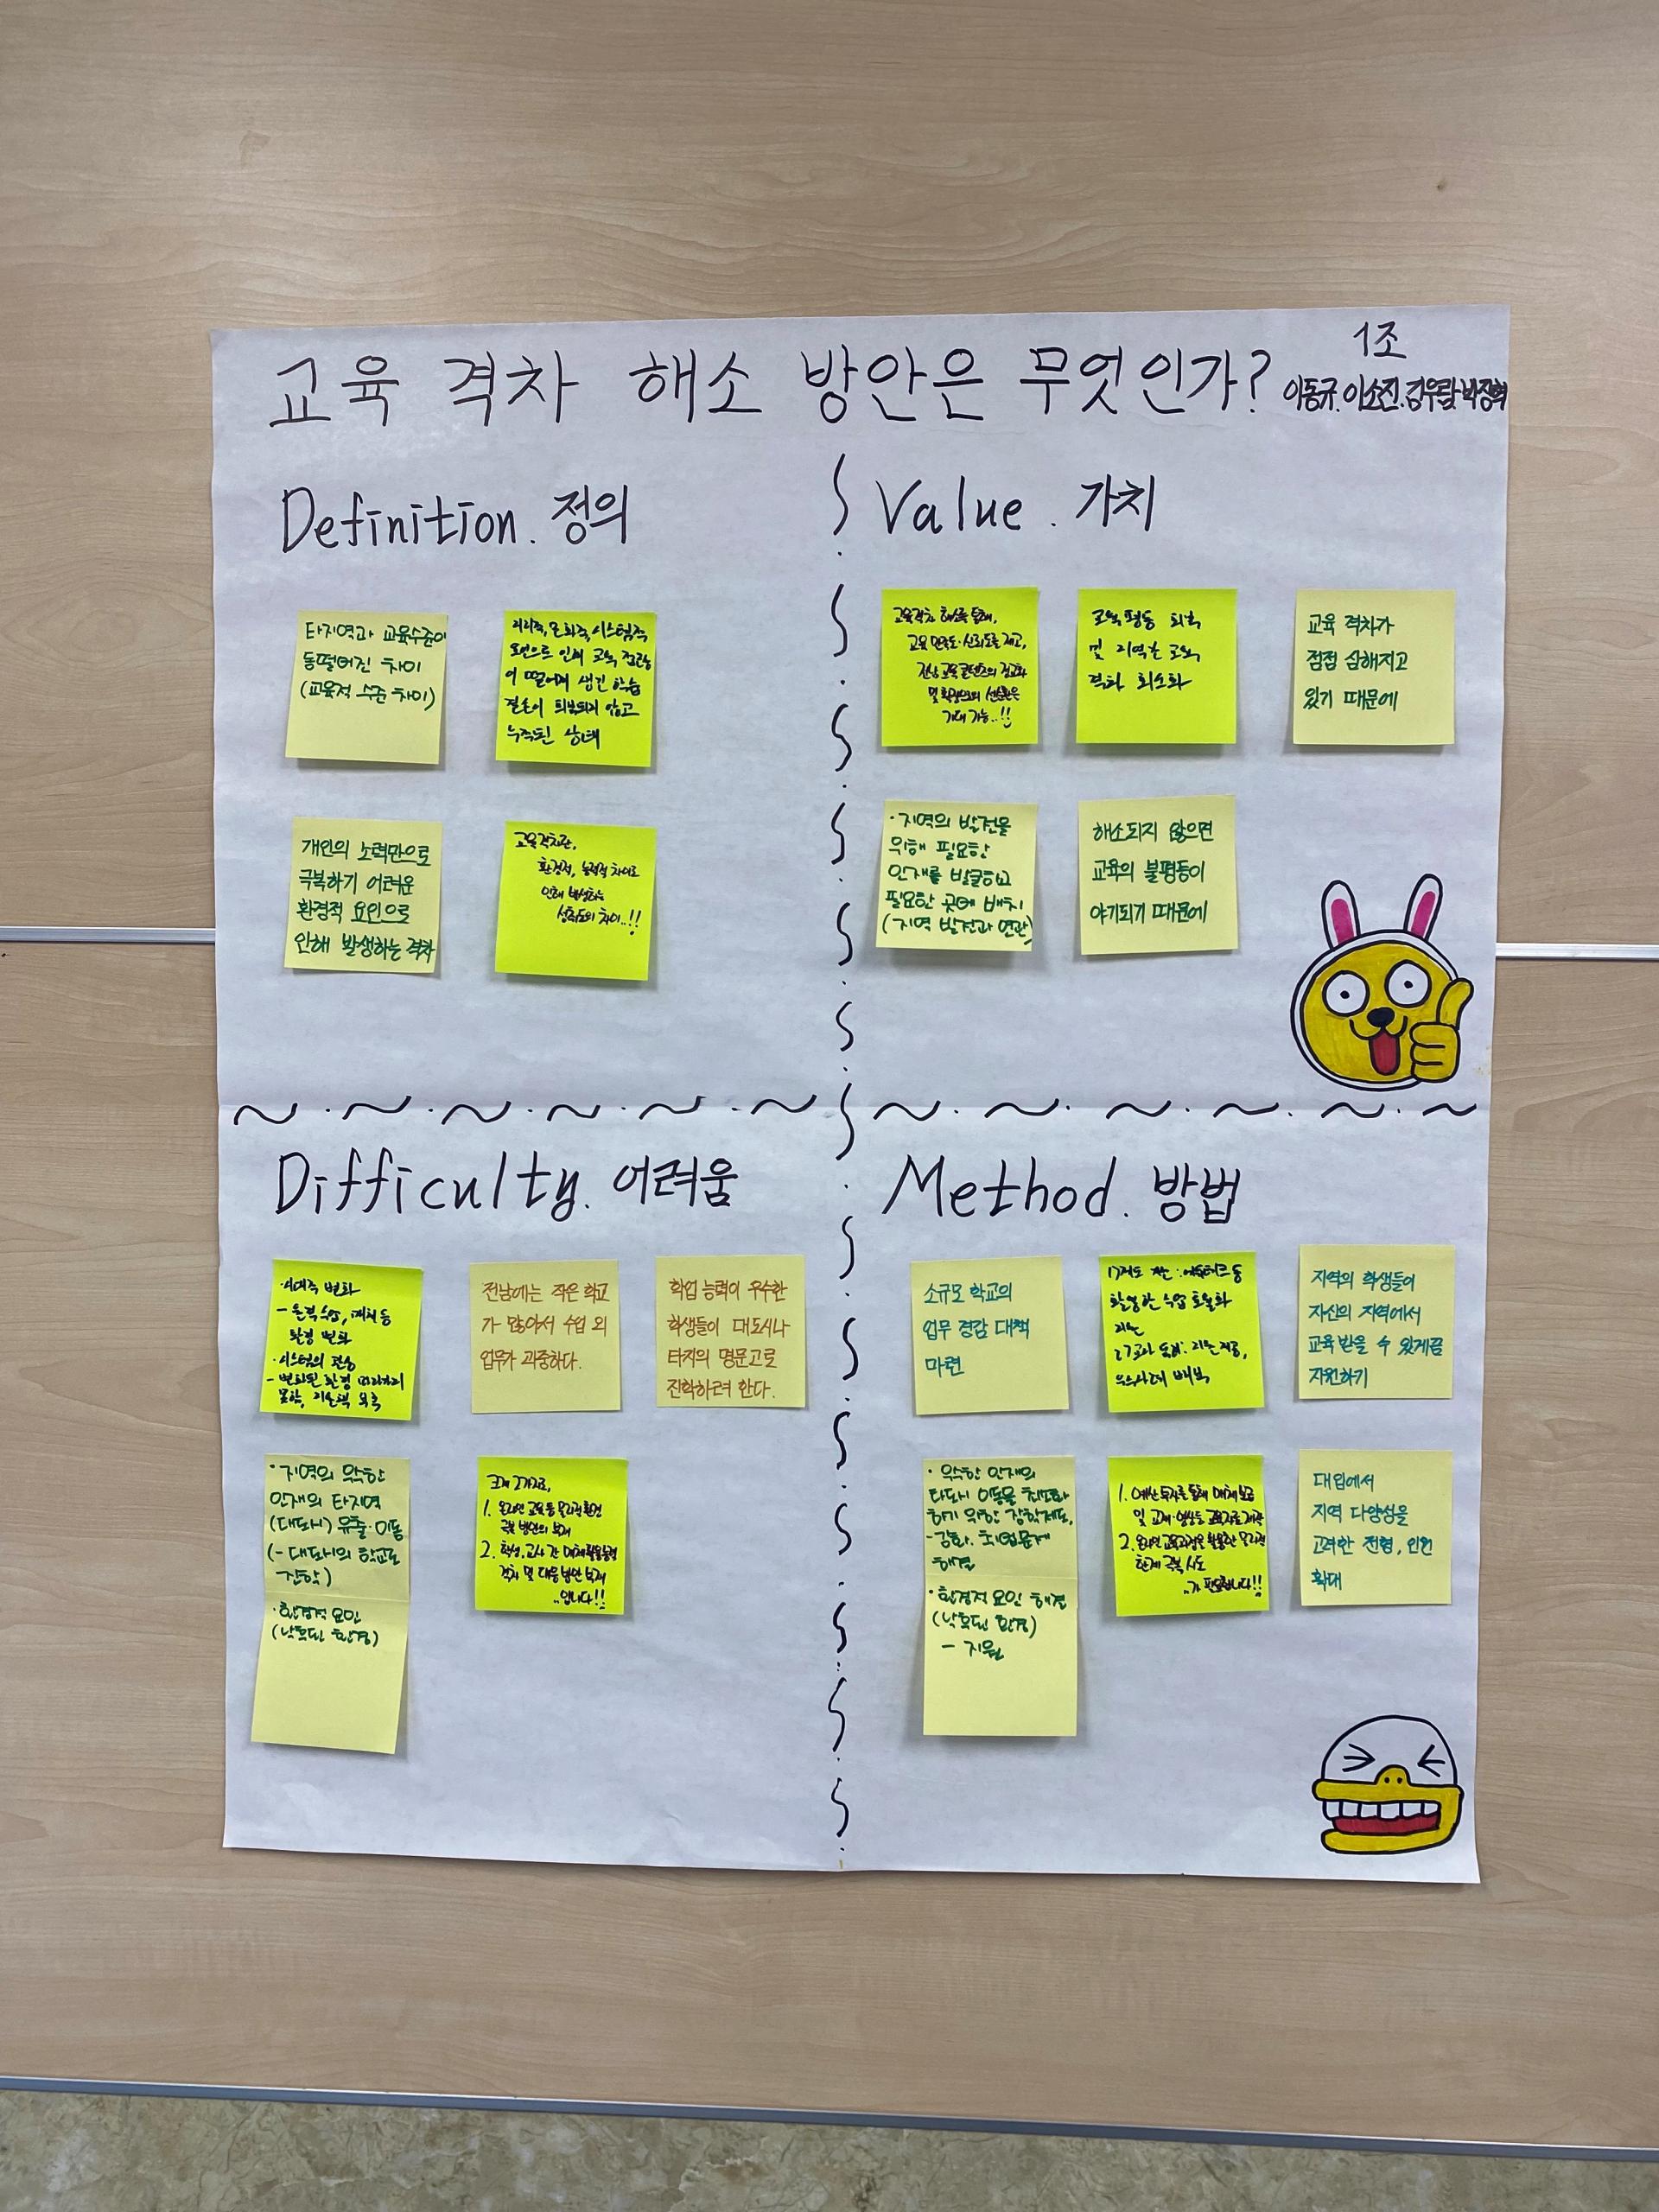 교육 격차 해소 방안은 무엇인가?
1조
이동규. 이소진. 김우람. 박장혁
Definition. 정의
타지역과 교육수준이
동떨어진 차이
(교육적 수준 차이)
지리적, 문화적, 시스템적
요인으로 인해 교육 접근성
이 떨어져 생긴 학습
결손이 회복되지 않고
누적된 상태
개인의 노력만으로
극복하기 어려운
환경적 요인으로
인해 발생하는 격차
교육격차란,
환경적, 능력적 차이로
인해 발생하는
성취도의 차이..!!
Value. 가치
교육격차 해소를 통해,
교육 만족도·신뢰도를 제고,
전남 교육 콘텐츠의
및 확장으로의 선순환은
기대 가능..!!
교육 평등 회복
및 지역간 교육
격차 최소화
교육 격차가
점점 심해지고
있기 때문에
·지역의 발전을
위해 필요한
인재를 발굴하고
필요한 곳에 배치
(지역 발전과 연관)
해소되지 않으면
교육의 불평등이
야기되기 때문에
Difficulty. 어려움
·시대적 변화
- 원격수업, 매체 등
환경 변화
·시스템의 관성
- 변화된 환경 따라가지
못함,
전남에는 작은 학교
가 많아서 수업 외
업무가 과중하다.
학업 능력이 우수한
학생들이 대도시나
타지의 명문고로
진학하려 한다.
·지역의 우수한
인재의 타지역
(대도시) 유출·이동
(- 대도시의 학교로
진학)
·환경적 요인
(낙후된 환경)
크게 2가지로,
1. 온라인 교육 등 물리적 환경
극복 방안의 부재
2. 학생, 교사 간 매체 활용능력
격차 및 대응 방안 부재
..입니다!!
Method. 방법
소규모 학교의
업무 경감 대책
마련
활용한 수업 효율화
지원
지역의 학생들이
자신의 지역에서
교육받을 수 있게끔
지원하기
·우수한 인재의
타도시 이동을 최소화
하기 위한 장학제도,
- 강화. 취업문제
해결
·환경적 요인 해결
(낙후된 환경)
- 지원
1. 예산 투자를 통해 매체 보급
및 교재·영상등 교육자료 제작
2. 온라인 교육과정을 활용한 물리적
한계 극복 시도
..가 필요합니다!!
대입에서
지역 다양성을
고려한 전형, 인원
확대